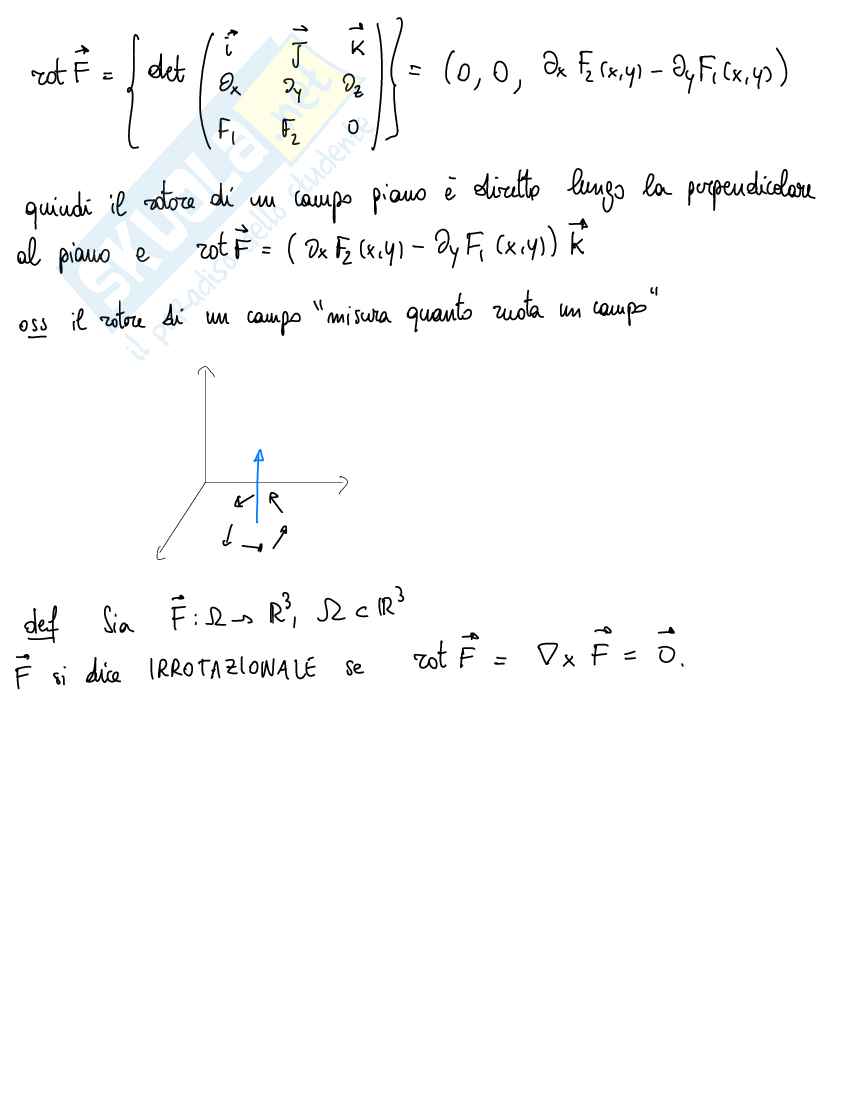 rot F⃗ = { det ( i⃗ j⃗ k⃗
∂x ∂y ∂z
F₁ F₂ 0 ) } = (0, 0, ∂x F₂(x,y) − ∂y F₁(x,y))
quindi il rotore di un campo piano è diretto lungo la perpendicolare
al piano e rot F⃗ = (∂x F₂(x,y) − ∂y F₁(x,y)) k⃗
oss il rotore di un campo "misura quanto ruota un campo"
def Sia F⃗ : Ω → ℝ³, Ω ⊂ ℝ³
F⃗ si dice IRROTAZIONALE se rot F⃗ = ∇ x F⃗ = 0⃗.
SKUOLA.net
il paradiso dello studente